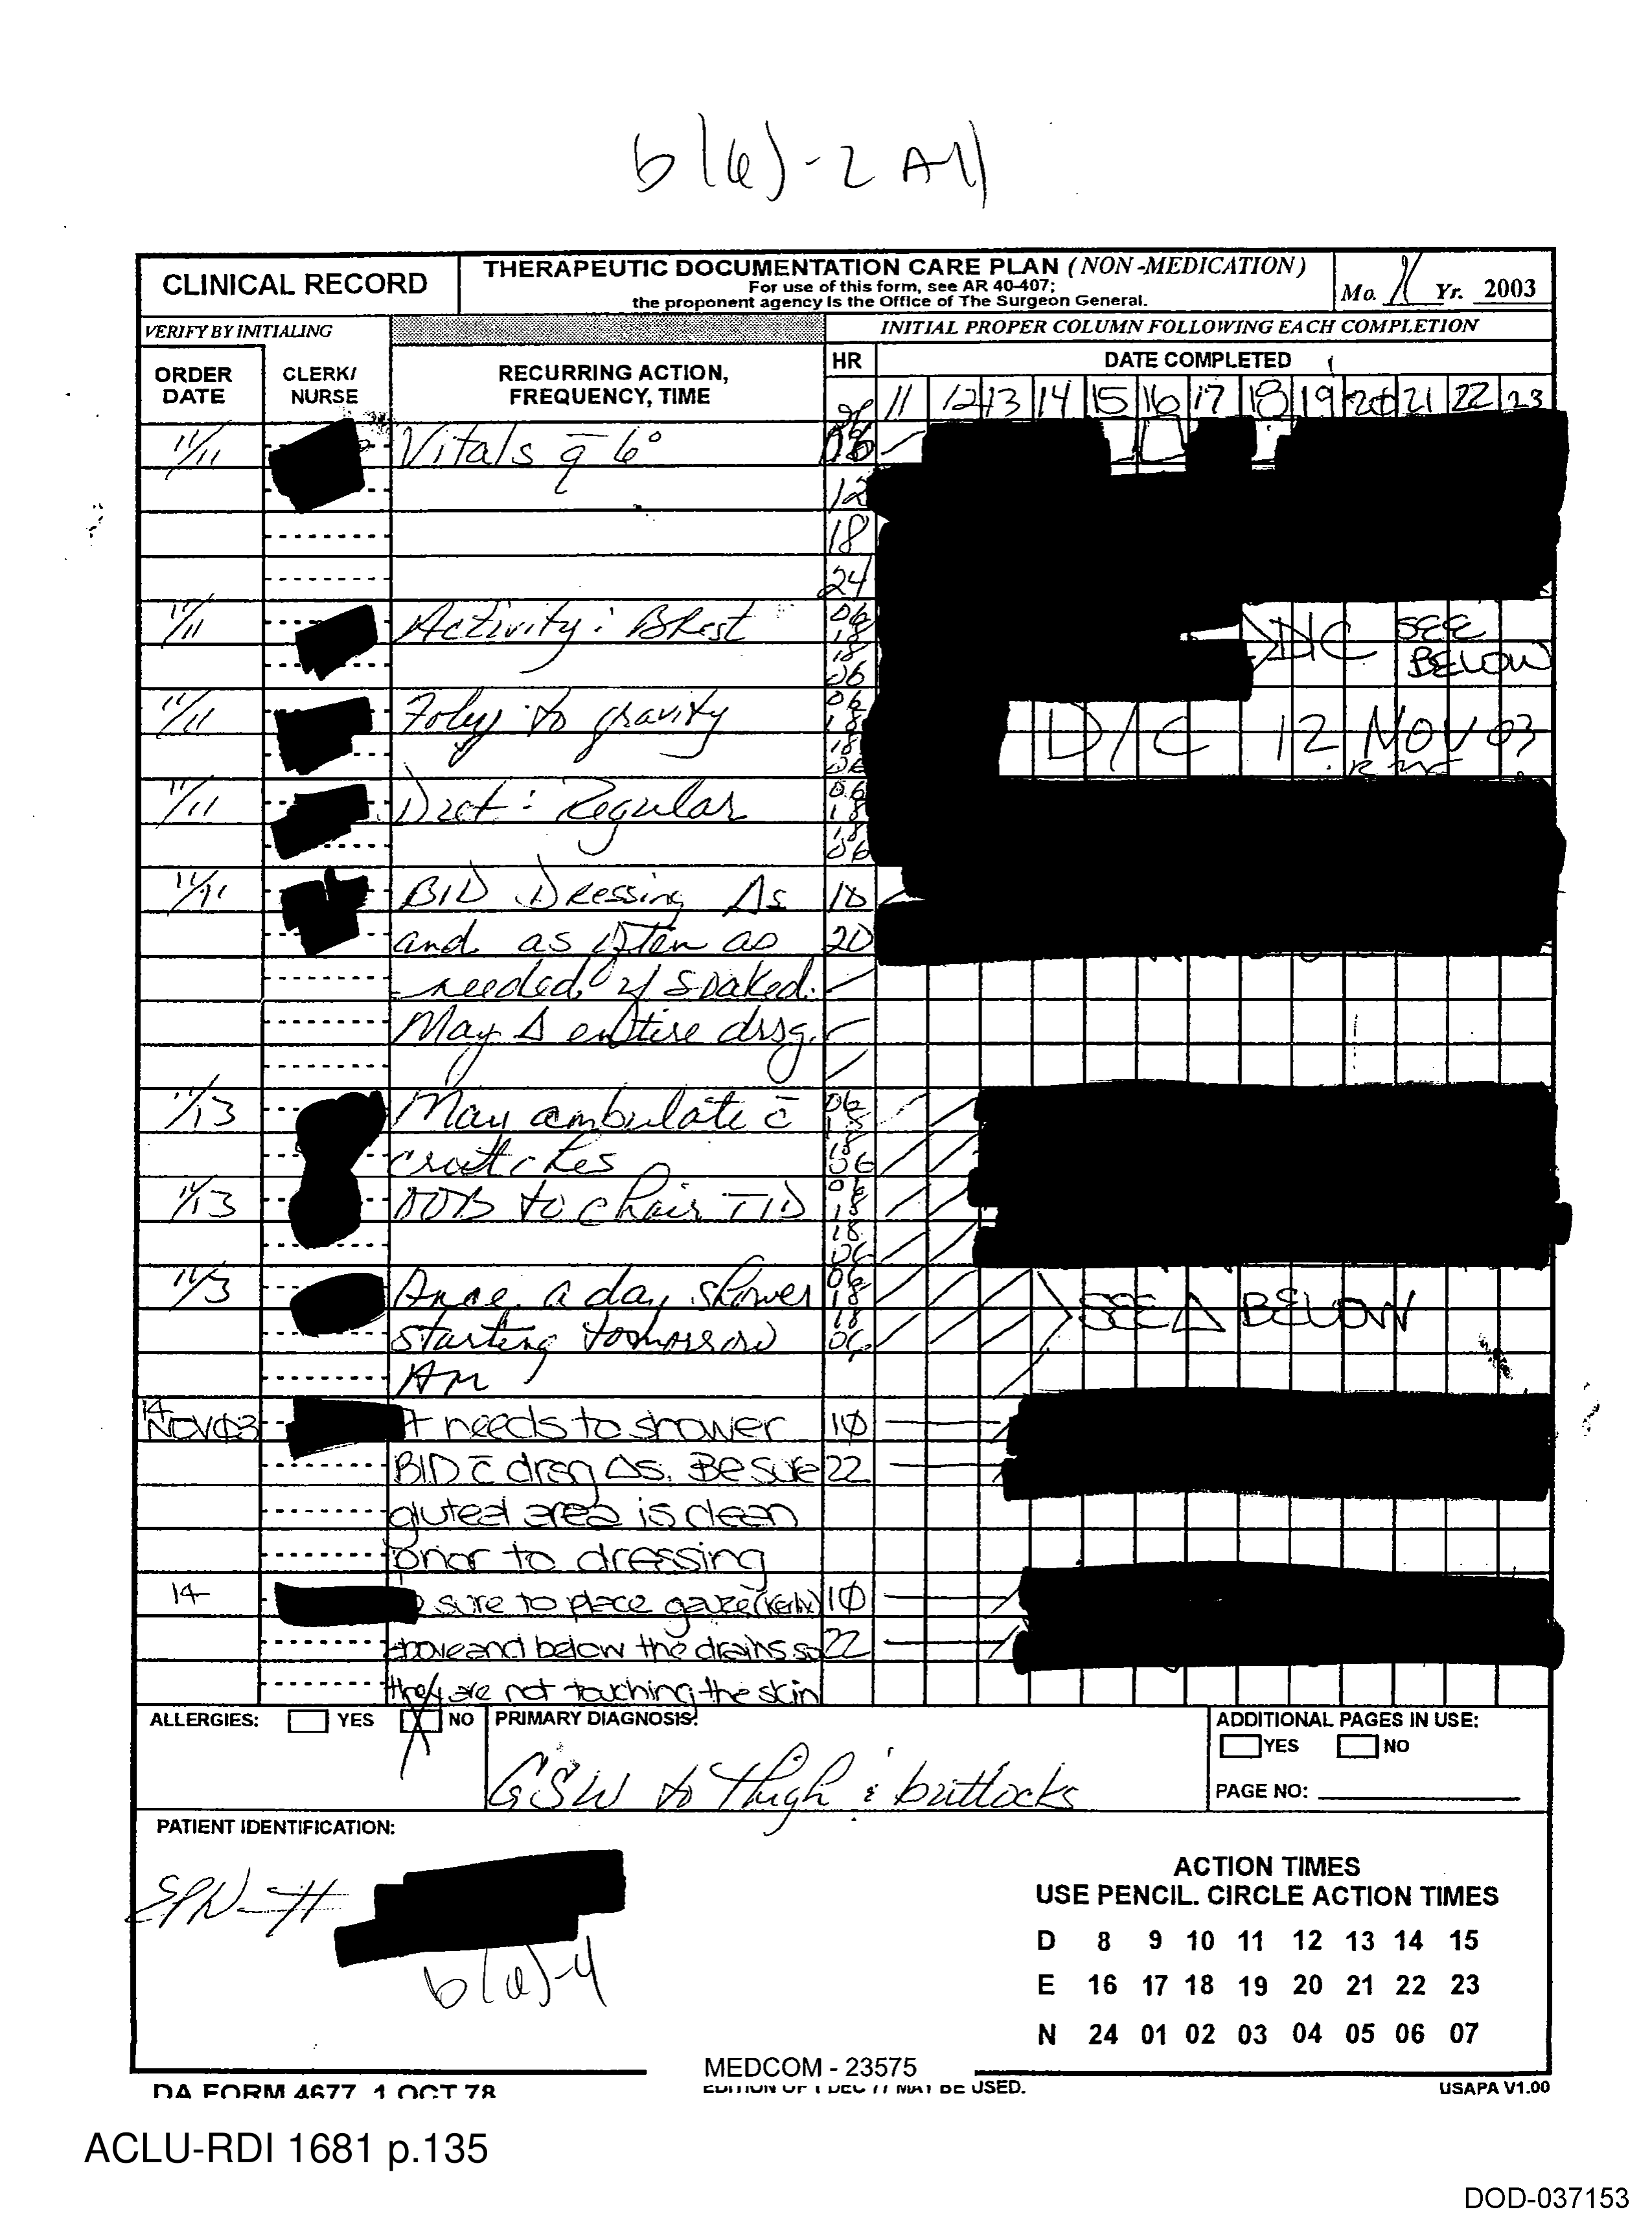 b(6)-2 All
CLINICAL RECORD
THERAPEUTIC DOCUMENTATION CARE PLAN (NON-MEDICATION)
For use of this form, see AR 40-407;
the proponent agency is the Office of The Surgeon General.
Mo. 11 Yr. 2003
VERIFY BY INITIALING
INITIAL PROPER COLUMN FOLLOWING EACH COMPLETION
ORDER DATE
CLERK/ NURSE
RECURRING ACTION, FREQUENCY, TIME
HR
DATE COMPLETED
11 12 13 14 15 16 17 18 19 20 21 22 23
11/11 Vitals q 6° 06
12
18
24
11/11 Activity: BRest 06 18 18 06 D/C SEE BELOW
11/11 Foley to gravity 06 18 18 06 D/C 12 NOV 03
11/11 Diet: Regular 06 18 18 06
11/11 BID Dressing Δs 10
and as often as 20
needed if soaked.
May Δ entire drsg.
11/13 May ambulate c̄ 06 18
crutches 18 06
11/13 OOB to chair TID 06 18
18 06
11/13 Once a day shower 06 18 SEE Δ BELOW
starting tomorrow 18 06
AM
14 NOV 03 needs to shower 10
BID c̄ drsg Δs. Be sure 22
gluteal area is clean
prior to dressing
14 sure to place gauze (Kerlix) 10
above and below the drains so 22
they are not touching the skin
ALLERGIES: YES NO
PRIMARY DIAGNOSIS:
GSW to thigh & buttocks
ADDITIONAL PAGES IN USE:
YES NO
PAGE NO:
PATIENT IDENTIFICATION:
EPW-#
b(6)-4
ACTION TIMES
USE PENCIL. CIRCLE ACTION TIMES
D 8 9 10 11 12 13 14 15
E 16 17 18 19 20 21 22 23
N 24 01 02 03 04 05 06 07
MEDCOM - 23575
DA FORM 4677, 1 OCT 78
EDITION OF 1 DEC 77 MAY BE USED.
USAPA V1.00
ACLU-RDI 1681 p.135
DOD-037153